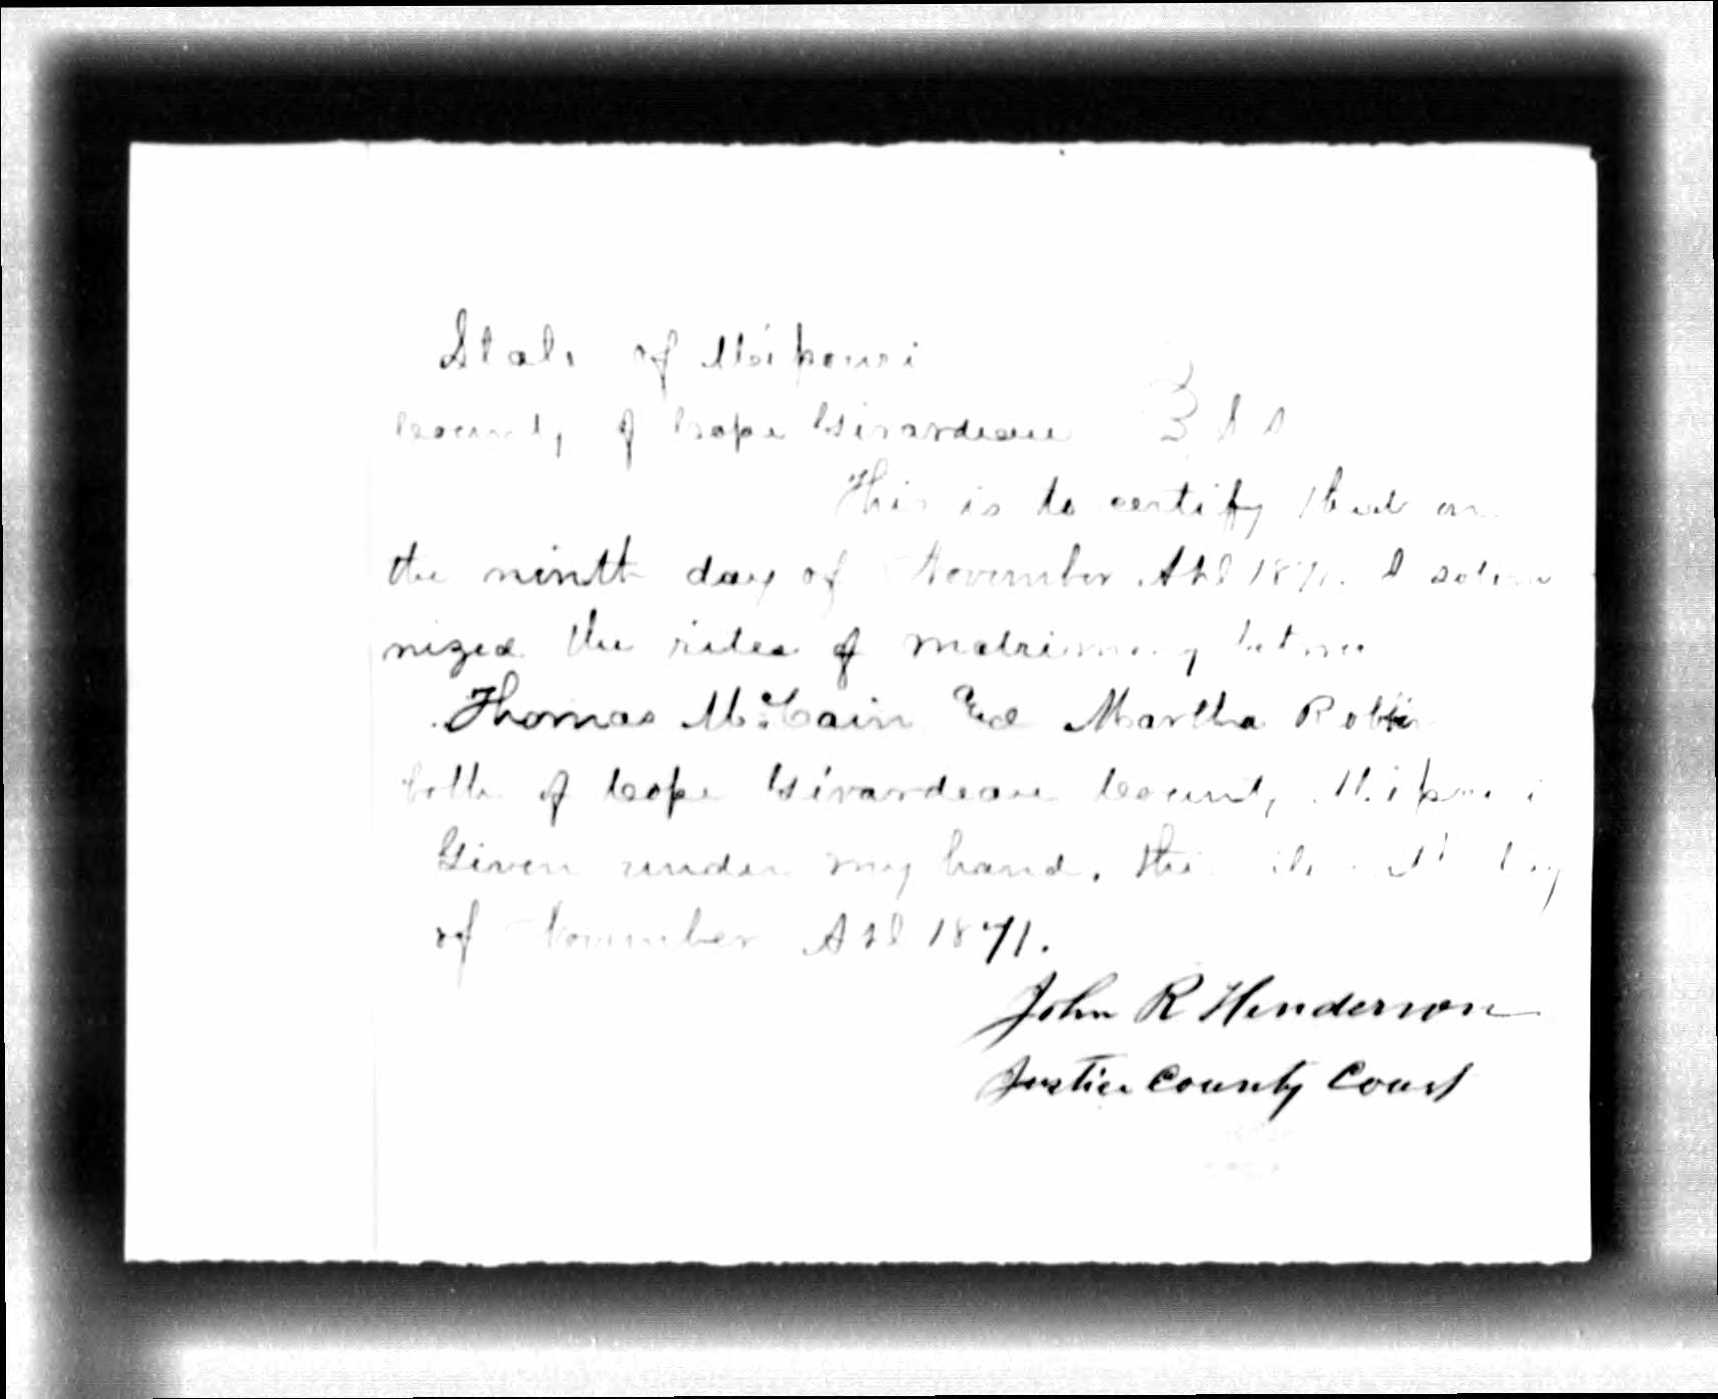 State of Missouri
County of Cape Girardeau } S S
This is to certify that on
the ninth day of November A D 1871. I solem
nized the rites of matrimony between
Thomas McCain and Martha
both of Cape Girardeau County, Missouri
Given under my hand, this day
of November A D 1871.
John R Henderson
Justice County Court